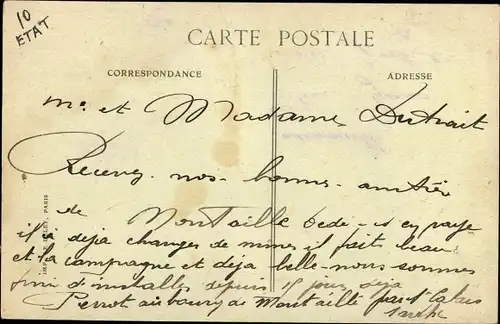 10
ETAT
CARTE POSTALE
CORRESPONDANCE
ADRESSE
mr. et Madame Dutrait
Recevez. nos. bonnes. amitiés
de Montaille
ils deja changer de mines il fait beau
et la campagne et déja belle - nous sommes
d'installés depuis 15 jours déja
Perrot au bourg de Montaillé par St Calais
Sarthe
PARIS